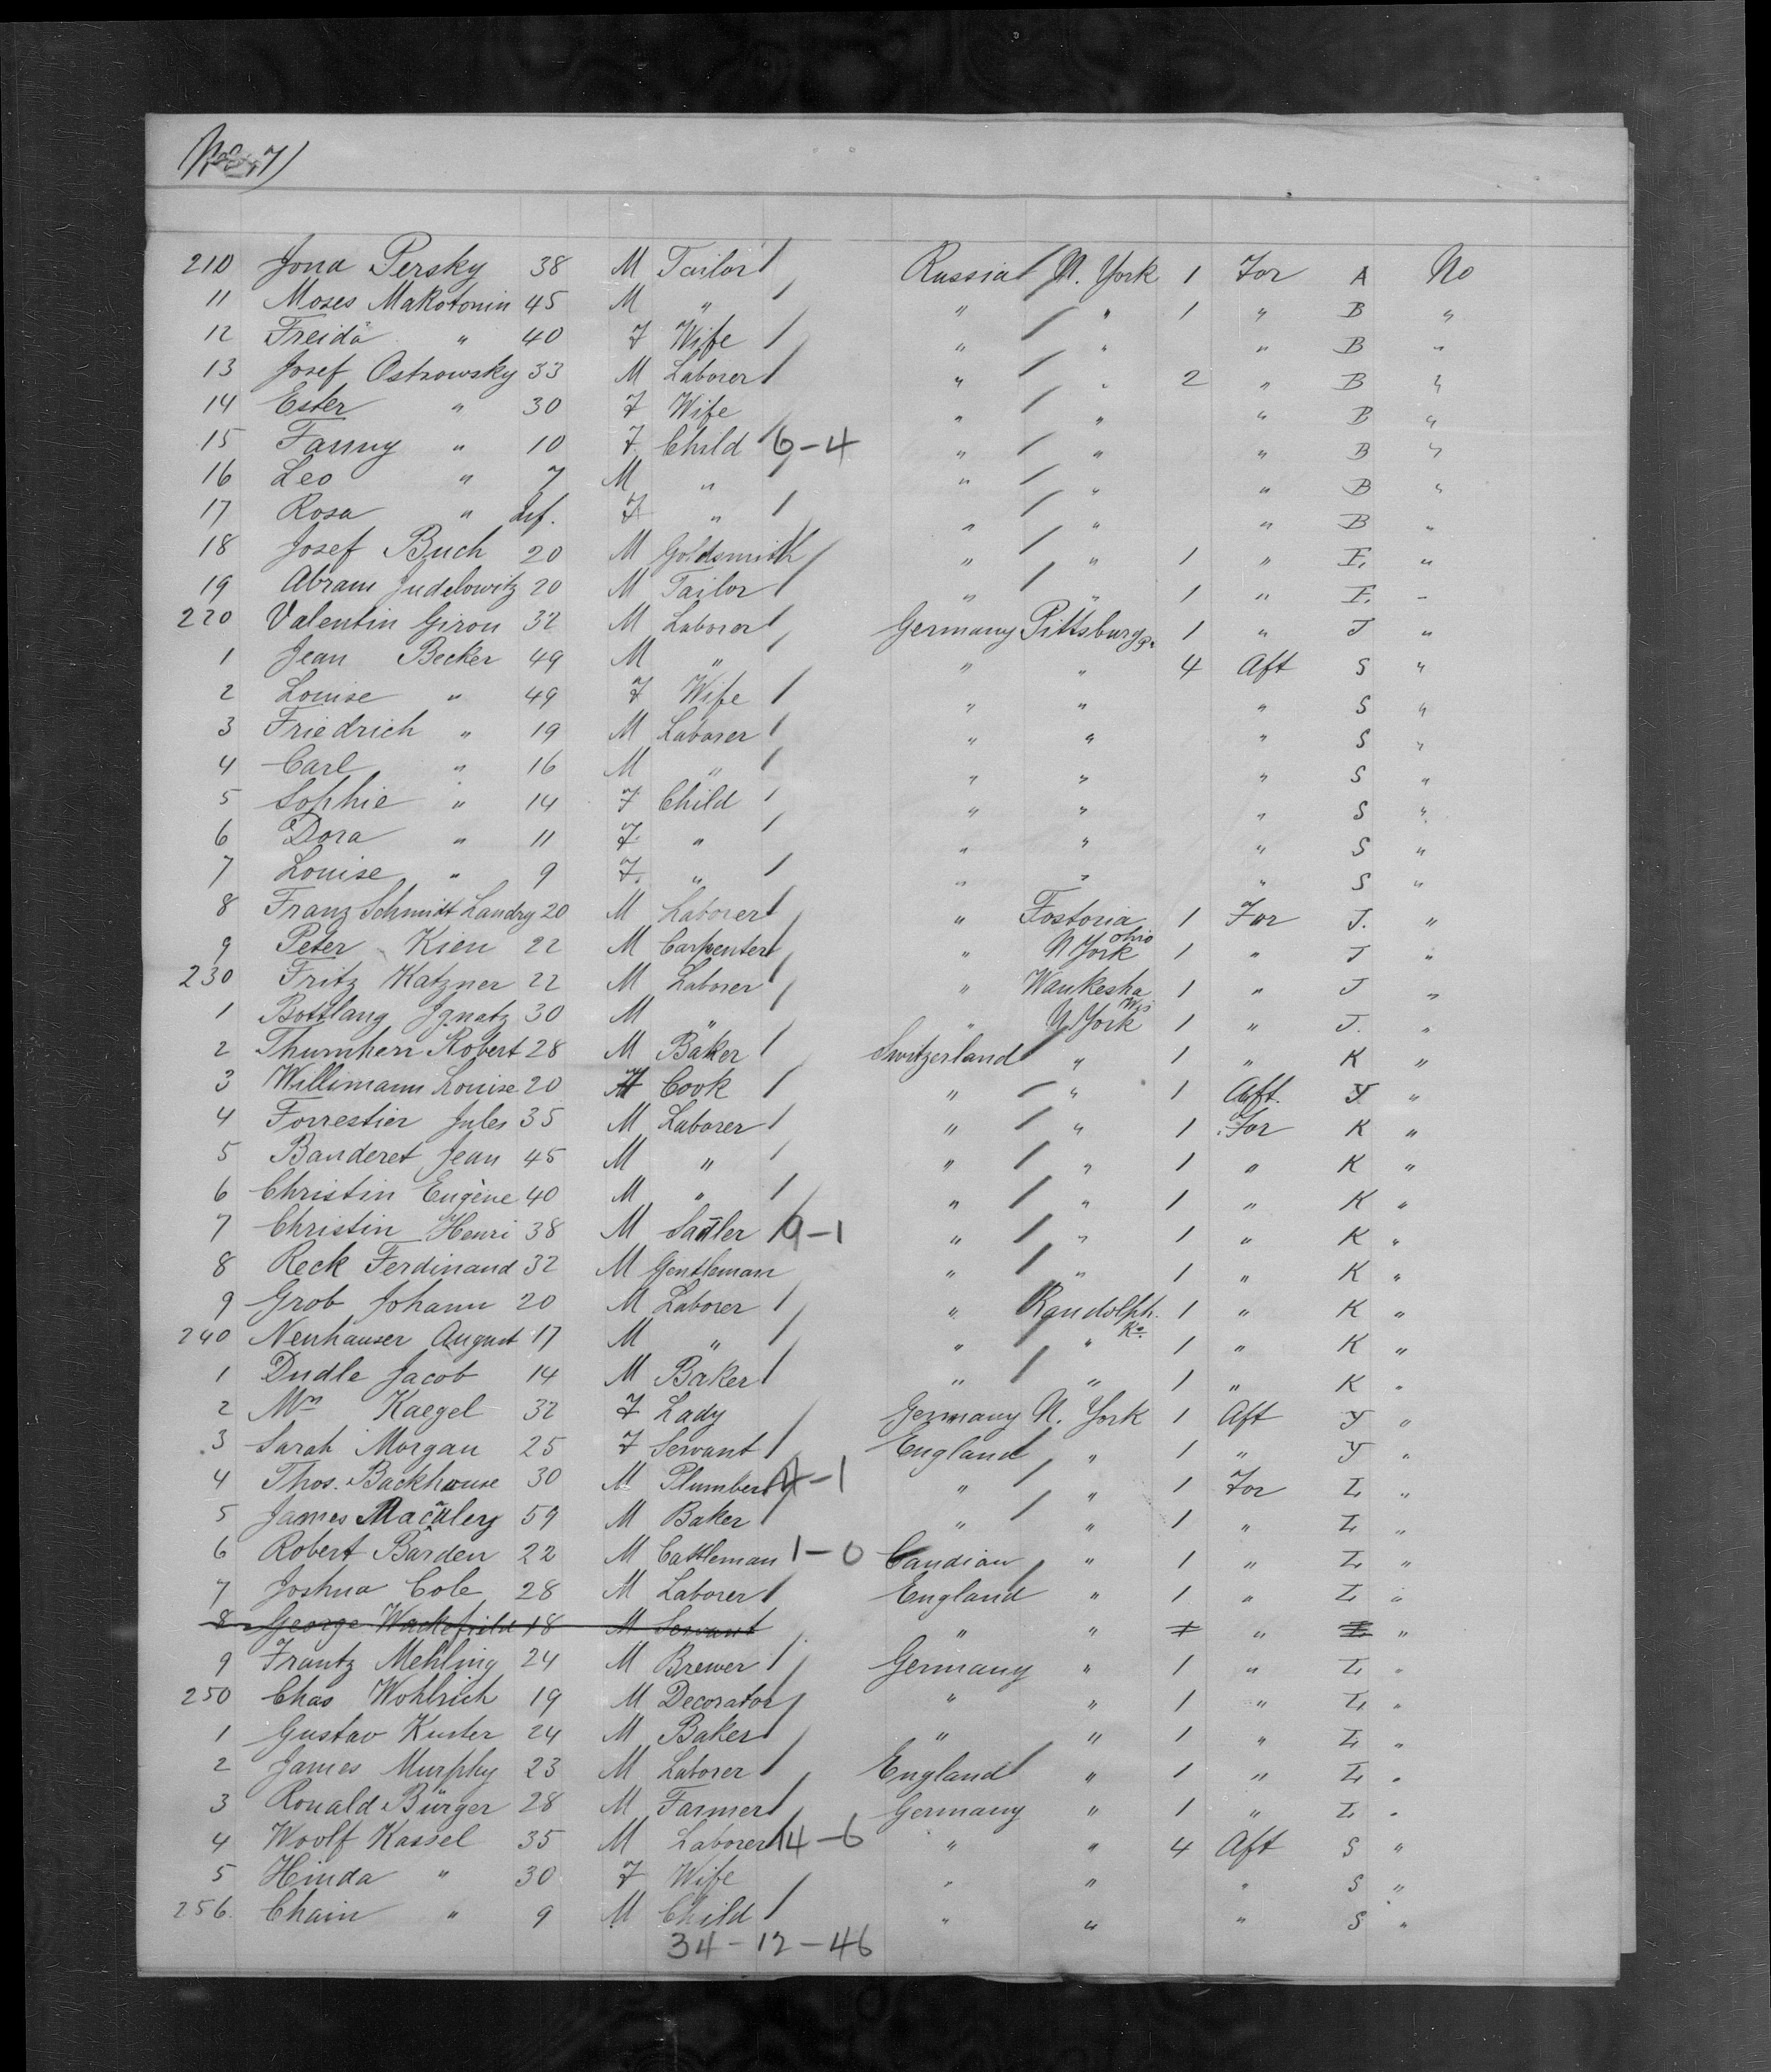 No 7)
210 Jona Persky 38 M Tailor Russia N. York 1 For A No
11 Moses Makotonin 45 M " " " 1 " B "
12 Freida " 40 F Wife " " " B "
13 Josef Ostrowsky 33 M Laborer " " 2 " B "
14 Ester " 30 F Wife " " " B "
15 Fanny " 10 F. Child 6-4 " " " B "
16 Leo " 7 M " " " " B "
17 Rosa " Inf. F " " " " B "
18 Josef Buch 20 M Goldsmith " " 1 " E. "
19 Abram Judelowitz 20 M Tailor " " 1 " E. "
220 Valentin Giron 32 M Laborer Germany Pittsburg Pa. 1 " J "
1 Jean Becker 49 M " " " 4 Aft S "
2 Louise " 49 F Wife " " " S "
3 Friedrich " 19 M Laborer " " " S "
4 Carl " 16 M " " " " S "
5 Sophie " 14 F Child " " " S "
6 Dora " 11 F " " " " S "
7 Louise " 9 F. " " " " S "
8 Franz Schmitt Landry 20 M Laborer " Fostoria Ohio 1 For J. "
9 Peter Kien 22 M Carpenter " N York 1 " J "
230 Fritz Katzner 22 M Laborer " Waukesha Wis 1 " J "
1 Bottlang Ignatz 30 M " " N York 1 " J. "
2 Thumherr Robert 28 M Baker Switzerland " 1 " K "
3 Willimann Louise 20 F Cook " " 1 Aft. Y "
4 Forrestier Jules 35 M Laborer " " 1 For K "
5 Banderet Jean 45 M " " " 1 " K "
6 Christin Eugène 40 M " " " 1 " K "
7 Christin Henri 38 M Sadler 9-1 " " 1 " K "
8 Reck Ferdinand 32 M Gentleman " " 1 " K "
9 Grob Johann 20 M Laborer " Randolph. Ks. 1 " K "
240 Neuhauser August 17 M " " " 1 " K "
1 Dudle Jacob 14 M Baker " " 1 " K "
2 Mrs Kaegel 32 F Lady Germany N. York 1 Aft Y "
3 Sarah Morgan 25 F Servant England " 1 " Y "
4 Thos. Backhouse 30 M Plumber 4-1 " " 1 For L "
5 James Macauley 59 M Baker " " 1 " L "
6 Robert Barden 22 M Cattleman 1-0 Candian " 1 " L "
7 Joshua Cole 28 M Laborer England " 1 " L "
8 George Wackefield 18 M Servant " " 1 " L "
9 Frantz Mehling 24 M Brewer Germany " 1 " L "
250 Chas Wohlrich 19 M Decorator " " 1 " L "
1 Gustav Kuster 24 M Baker " " 1 " L "
2 James Murphy 23 M Laborer England " 1 " L "
3 Ronald Bürger 28 M Farmer Germany " 1 " L "
4 Woolf Kassel 35 M Laborer 14-6 " " 4 Aft S "
5 Hinda " 30 F Wife " " " S "
256. Chain " 9 M Child " " " S "
34-12-46